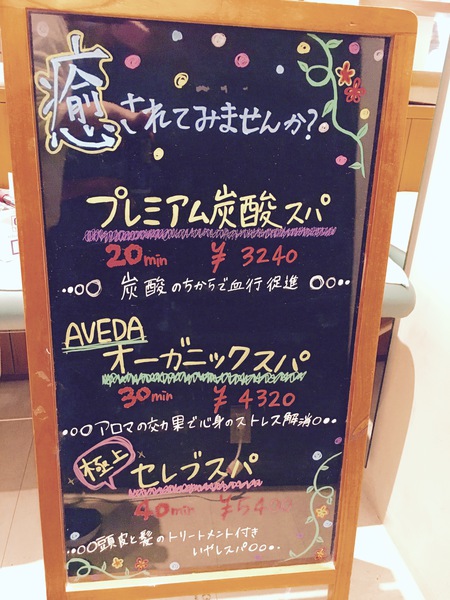 癒されてみませんか?
プレミアム炭酸スパ
20min ¥3240
炭酸のちからで血行促進
AVEDA
オーガニックスパ
30min ¥4320
アロマの効果で心身のストレス解消
極上
セレブスパ
40min
頭皮と髪のトリートメント付き
いやしスパ